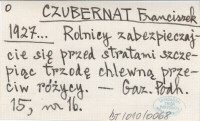 0
CZUBERNAT Franciszek
1927... Rolnicy zabezpieczaj-
cie się przed stratami szcze-
piąc trzodę chlewną prze-
ciw różycy. — Gaz. Podh.
15, nr 16.
BJ 1010/0068